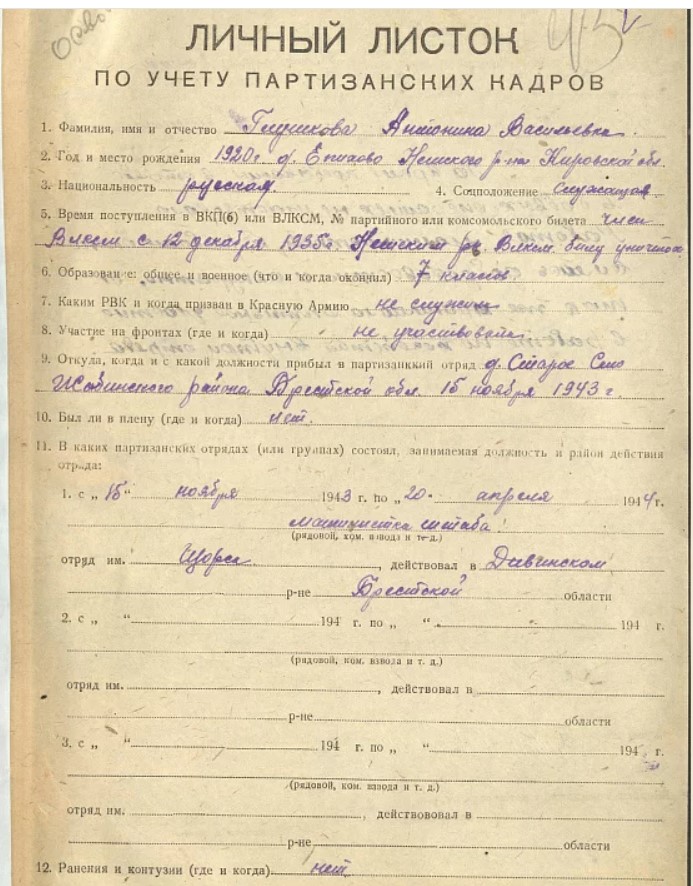 ЛИЧНЫЙ ЛИСТОК
ПО УЧЕТУ ПАРТИЗАНСКИХ КАДРОВ
1. Фамилия, имя и отчество Глушкова Антонина Васильевна.
2. Год и место рождения 1920г. д. Епихово Немского р-на Кировской обл.
3. Национальность русская. 4. Соцположение служащая
5. Время поступления в ВКП(б) или ВЛКСМ, № партийного или комсомольского билета член
Влксм с 12 декабря 1935г. Немским рк Влксм. билет уничтож.
6. Образование: общее и военное (что и когда окончил) 7 классов.
7. Каким РВК и когда призван в Красную Армию не служил
8. Участие на фронтах (где и когда) не участвовал.
9. Откуда, когда и с какой должности прибыл в партизанский отряд д. Старое Село
Жабинского района Брестской обл. 15 ноября 1943 г.
10. Был ли в плену (где и когда) нет.
11. В каких партизанских отрядах (или группах) состоял, занимаемая должность и район действия
отряда:
1. с „15“ ноября 1943 г. по „20. апреля 1944г.
машинистка штаба.
(рядовой, ком. взвода и т. д.)
отряд им. Щорса, действовал в Дивинском
р-не Брестской области
2. с „ “ 194 г. по „ “ 194 г.
(рядовой, ком. взвода и т. д.)
отряд им. , действовал в
р-не области
3. с „ “ 194 г. по „ “ 194 г.
(рядовой, ком. взвода и т. д.)
отряд им. , действововал в
р-не области
12. Ранения и контузии (где и когда). нет